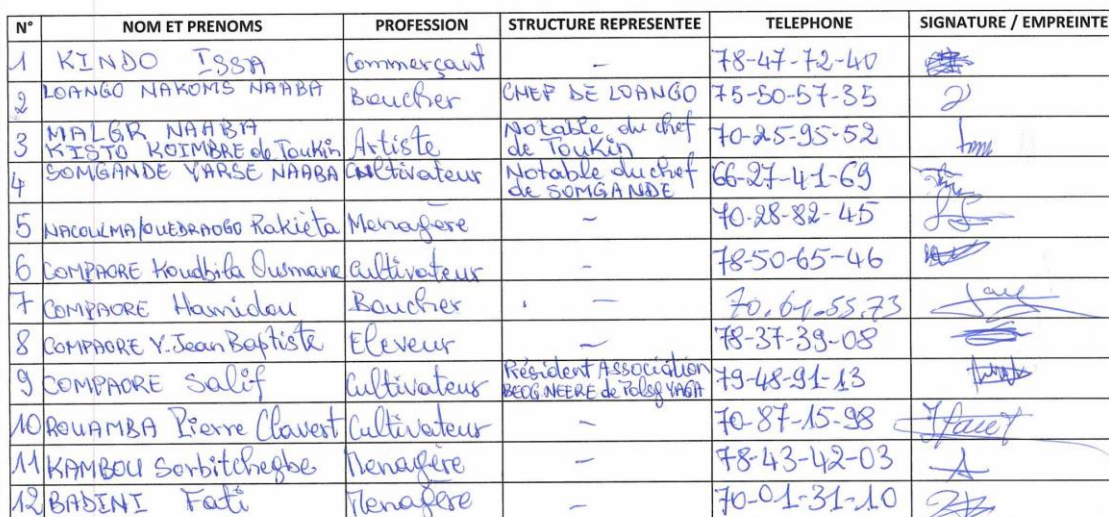 N° NOM ET PRENOMS PROFESSION STRUCTURE REPRESENTEE TELEPHONE SIGNATURE / EMPREINTE
1 KINDO ISSA Commerçant - 78-47-72-40
2 LOANGO NAKOMS NAABA Boucher CHEF DE LOANGO 75-50-57-35
3 MALGR NAABA
KISTO KOIMBRE de Toukin Artiste Notable du chef
de Toukin 70-25-95-52
4 SOMGANDE YARSE NAABA Cultivateur Notable du chef
de SOMGANDE 66-27-41-69
5 NACOULMA/OUEDRAOGO Rakiéta Menagère - 70-28-82-45
6 COMPAORE Koudbila Ousmane Cultivateur - 78-50-65-46
7 COMPAORE Hamidou Boucher - 70.61.55.73
8 COMPAORE Y. Jean Baptiste Eleveur 78-37-39-08
9 COMPAORE Salif Cultivateur Président Association
BEOG NEERE de 79-48-91-13
10 ROUAMBA Pierre Clavert Cultivateur - 70-87-15-98
11 KAMBOU Sorbitchegbe Menagère - 78-43-42-03
12 BADINI Fati Menagère - 70-01-31-10